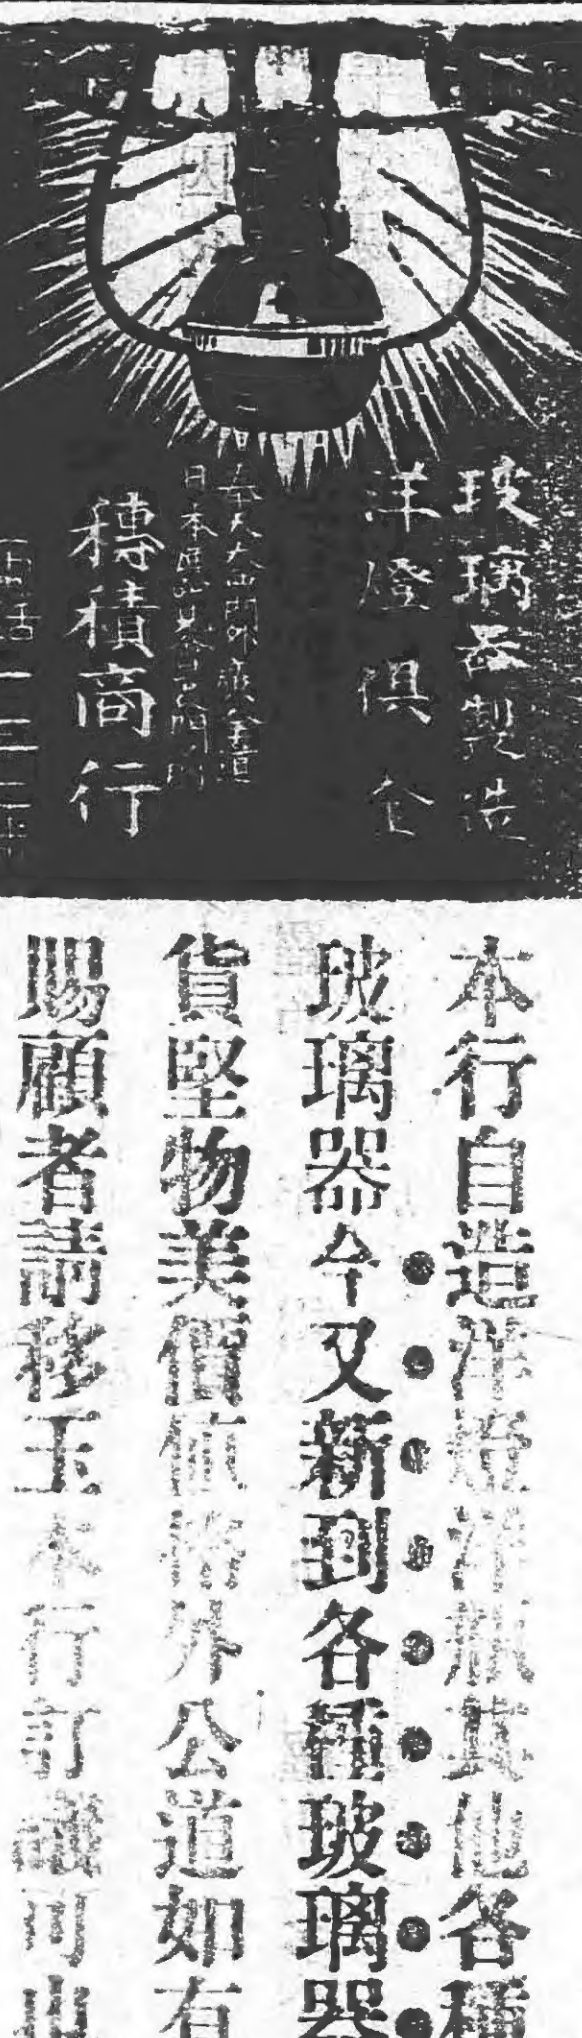 玻璃器製造
洋燈俱全
奉天大西門外
日本
穗積商行
電話一二三
本行自造洋燈洋瓶其他各種
玻璃器今又新到各種玻璃器
貨堅物美價值格外公道如有
賜顧者請移玉本行訂議可也